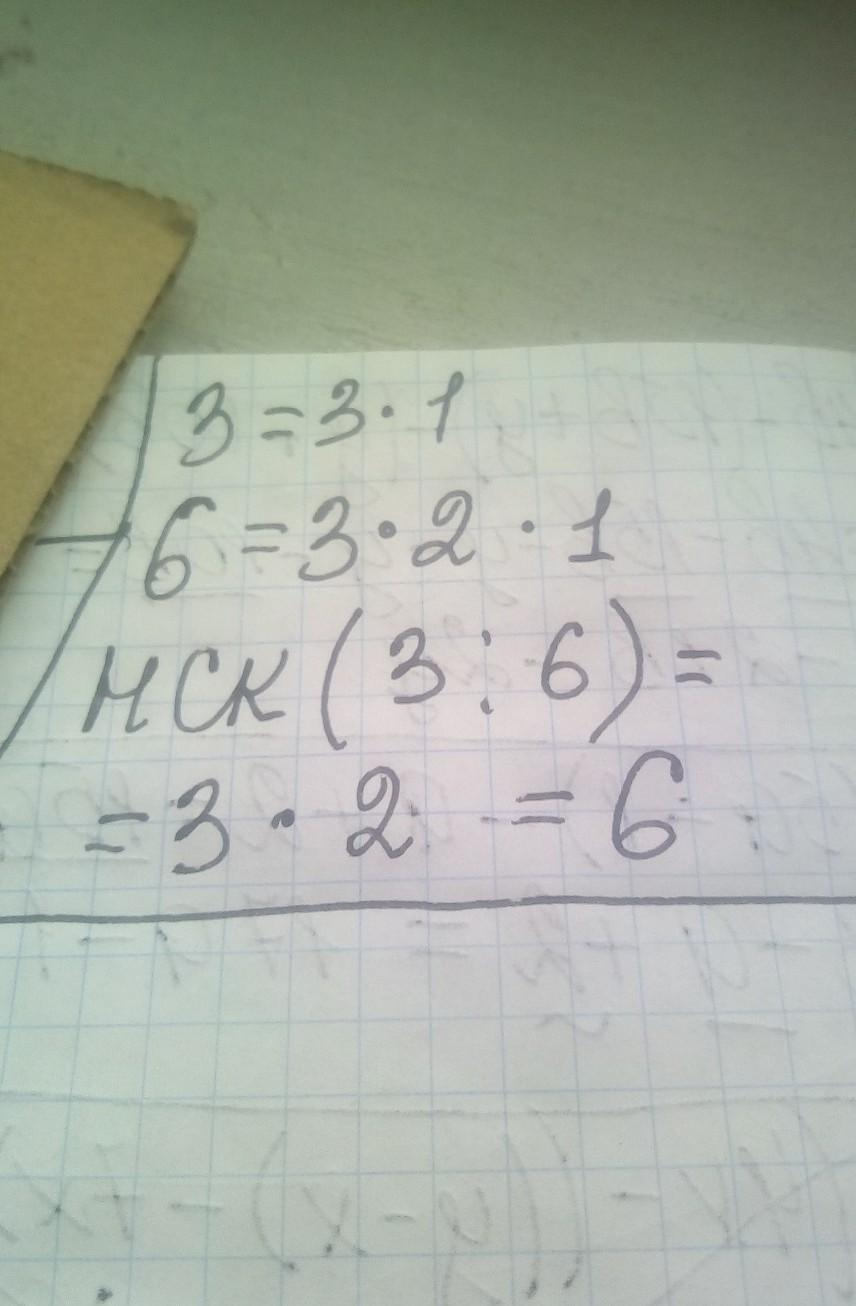 3 = 3 · 1
6 = 3 · 2 · 1
НСК ( 3 ; 6 ) =
= 3 · 2 = 6